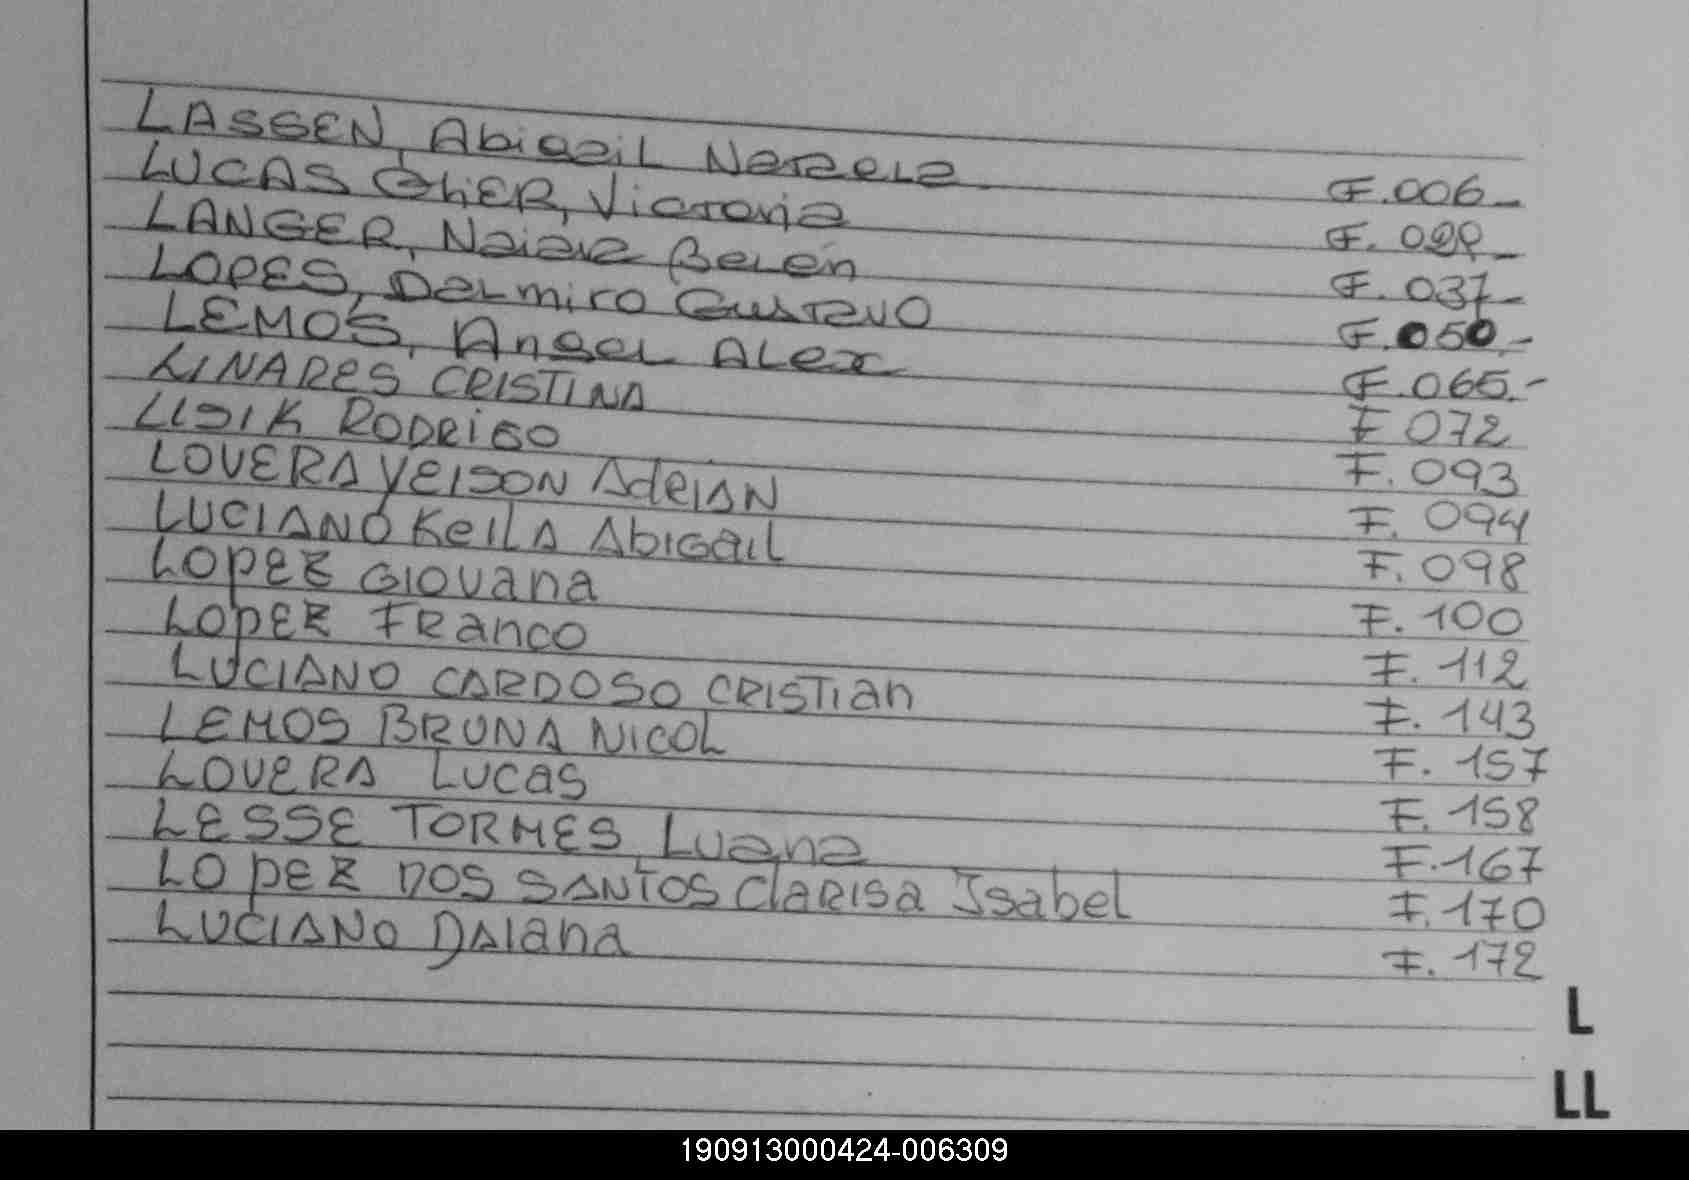 LASSEN, Abigail Natzela F.006-
LUCAS GhER, Victoria F.
LANGER, Naiara Belén F.037-
LOPES, Dalmiro Gustavo F.050.-
LEMOS, Angel Alex F.065.-
LINARES CRISTINA F 072
LISIK RODRIGO F.093
LOVERA YEISON AdRIAN F.094
LUCIANO KeILA AbIGaiL F.098
LOPEZ GIOVana F.100
LOPEZ FRanco F.112
LUCIANO CARDOSO CRISTIan F.143
LEMOS BRUNA NICOL F.157
LOVERA LUCAS F.158
LESSE TORMES, Luana F.167
LOPEZ DOS SANTOS ClaRISa Isabel F.170
LUCIANO DAIana F.172
L
LL
190913000424-006309